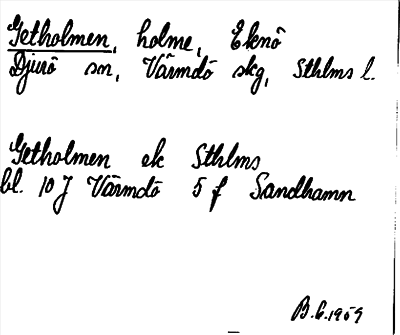 Getholmen, holme, Eknö
Djurö sn, Värmdö skg, Sthlms l.
Getholmen ek Sthlms
bl. 10 J Värmdö 5 f Sandhamn
B.G. 1959